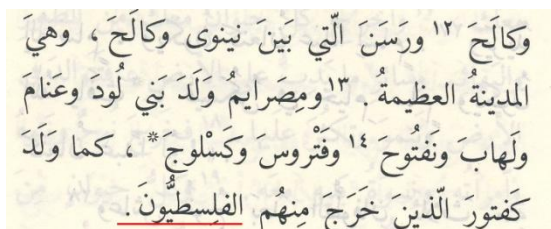 وكالَحَ ١٢ ورَسَنَ الّتي بَيْنَ نينوى وكالَحَ ، وهيَ
المدينةُ العظيمةُ . ١٣ ومِصَرايمُ وَلَدَ بَني لُودَ وعنامَ
ولَهابَ ونَفتُوحَ ١٤ وفَتْروسَ وكَسْلوجَ* ، كما وَلَد
كَفتورَ الّذينَ خَرَجَ مِنهُم الفلِسطيُّونَ .